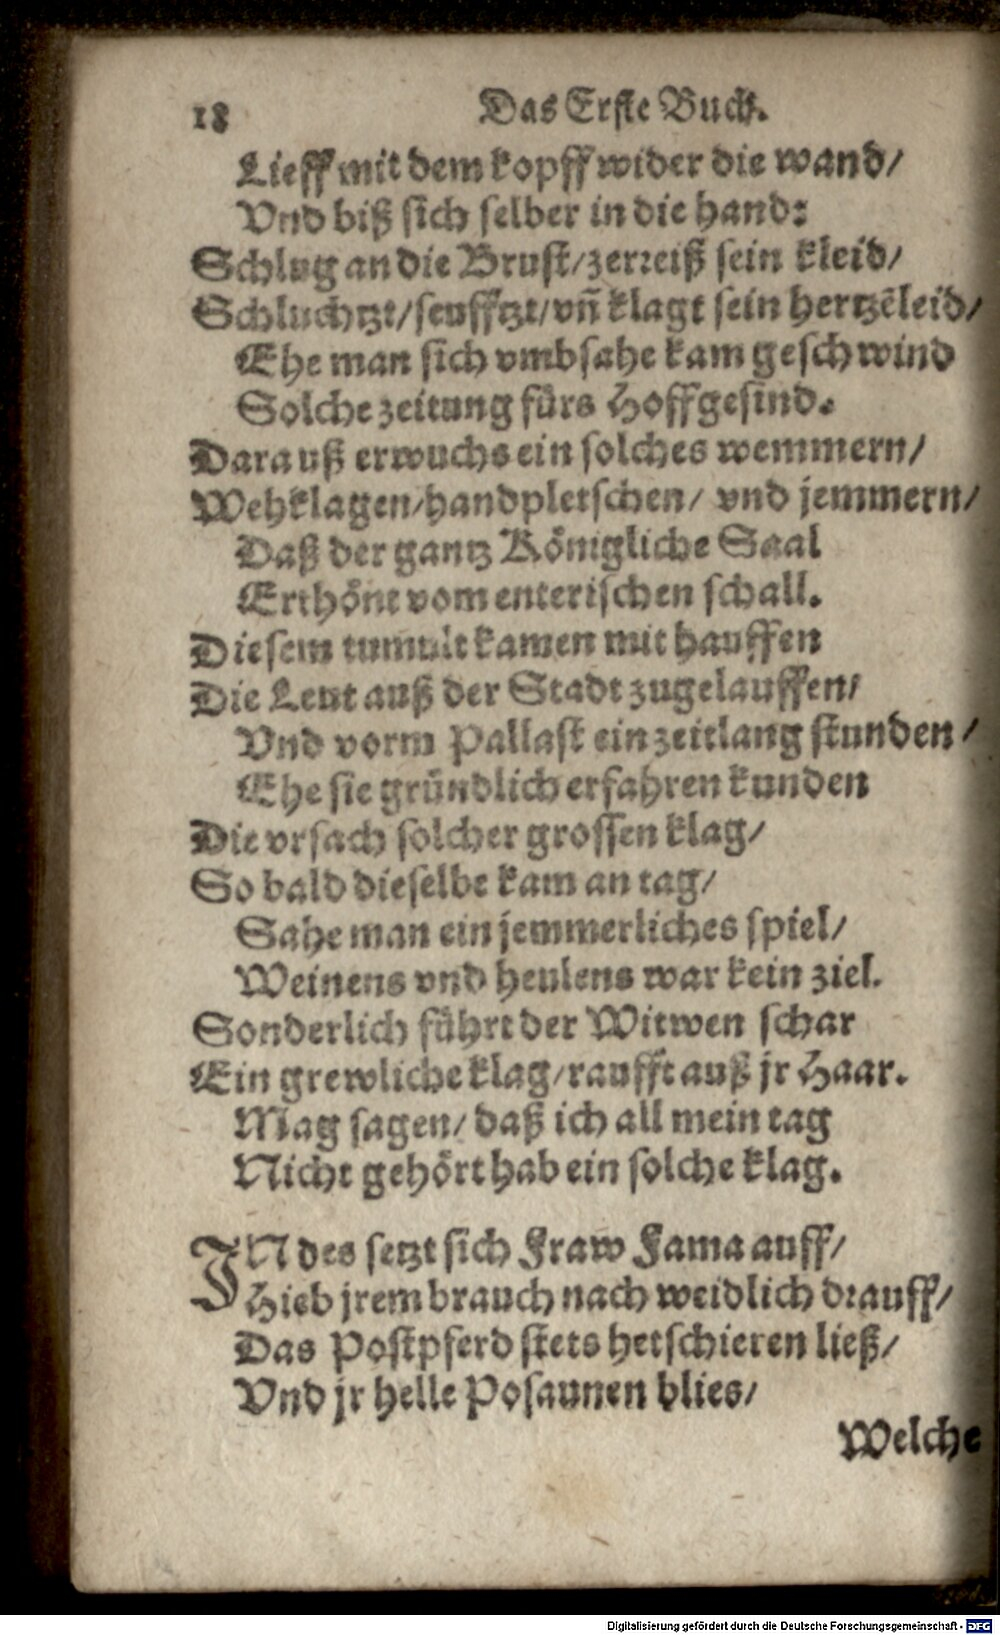 18 Das Erste Buch.
Lieff mit dem kopff wider die wand/
Vnd biß sich selber in die hand:
Schlug an die Brust/zerreiß sein kleid/
Schluchtzt/seufftzt/vñ klagt sein hertzẽleid/
Ehe man sich vmbsahe kam geschwind
Solche zeitung fürs Hoffgesind.
Darauß erwuchs ein solches wemmern/
Wehklagen/handpletschen/ vnd jemmern/
Daß der gantz Königliche Saal
Erthönt vom enterischen schall.
Diesem tumult kamen mit hauffen
Die Leut auß der Stadt zugelauffen/
Vnd vorm Pallast ein zeitlang stunden/
Ehe sie gründlich erfahren kunden
Die vrsach solcher grossen klag/
So bald dieselbe kam an tag/
Sahe man ein jemmerliches spiel/
Weinens vnd heulens war kein ziel.
Sonderlich führt der Witwen schar
Ein grewliche klag/raufft auß jr Haar.
Mag sagen/ daß ich all mein tag
Nicht gehört hab ein solche klag.
INdes setzt sich Fraw Fama auff/
Hieb jrem brauch nach weidlich drauff/
Das Postpferd stets hetschieren ließ/
Vnd jr helle Posaunen blies/
Welche
Digitalisierung gefördert durch die Deutsche Forschungsgemeinschaft - DFG